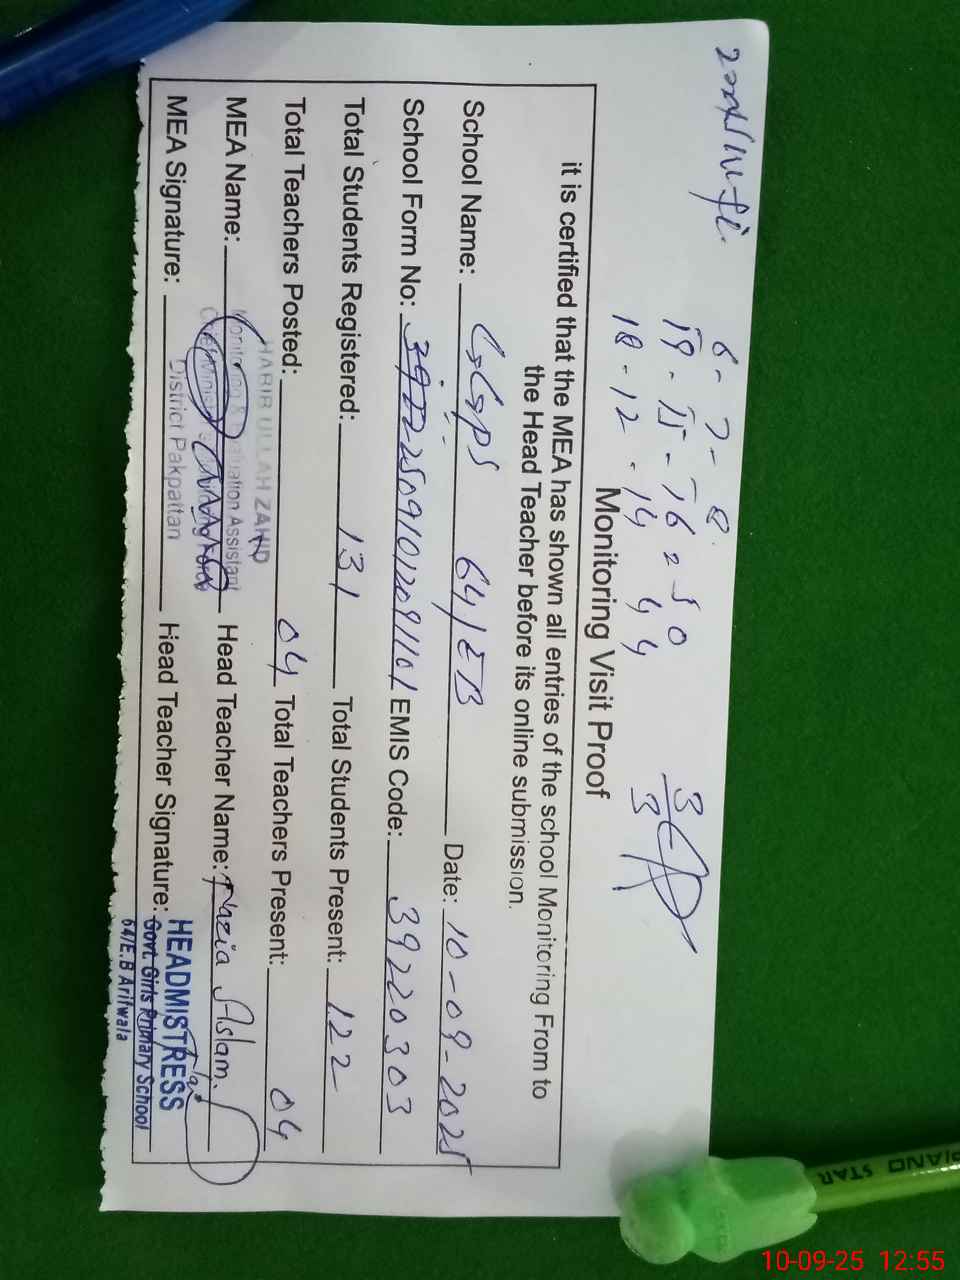 6 - 7 - 8
19 - 15 - 16 = 50
18 - 12 - 14 44
3
3
Monitoring Visit Proof
it is certified that the MEA has shown all entries of the school Monitoring From to
the Head Teacher before its online submission.
School Name: GGPS 64/EB Date: 10-09-2025
School Form No: EMIS Code: 39220303
Total Students Registered: 131 Total Students Present: 122
Total Teachers Posted: 04 Total Teachers Present: 04
HABIB ULLAH ZAHID
MEA Name: Monitoring & Evaluation Assistant Head Teacher Name: Fazia Aslam.
MEA Signature: District Pakpattan Head Teacher Signature:
HEADMISTRESS
Govt. Girls Primary School
64/E.B Arifwala
PIANO STAR
10-09-25 12:55